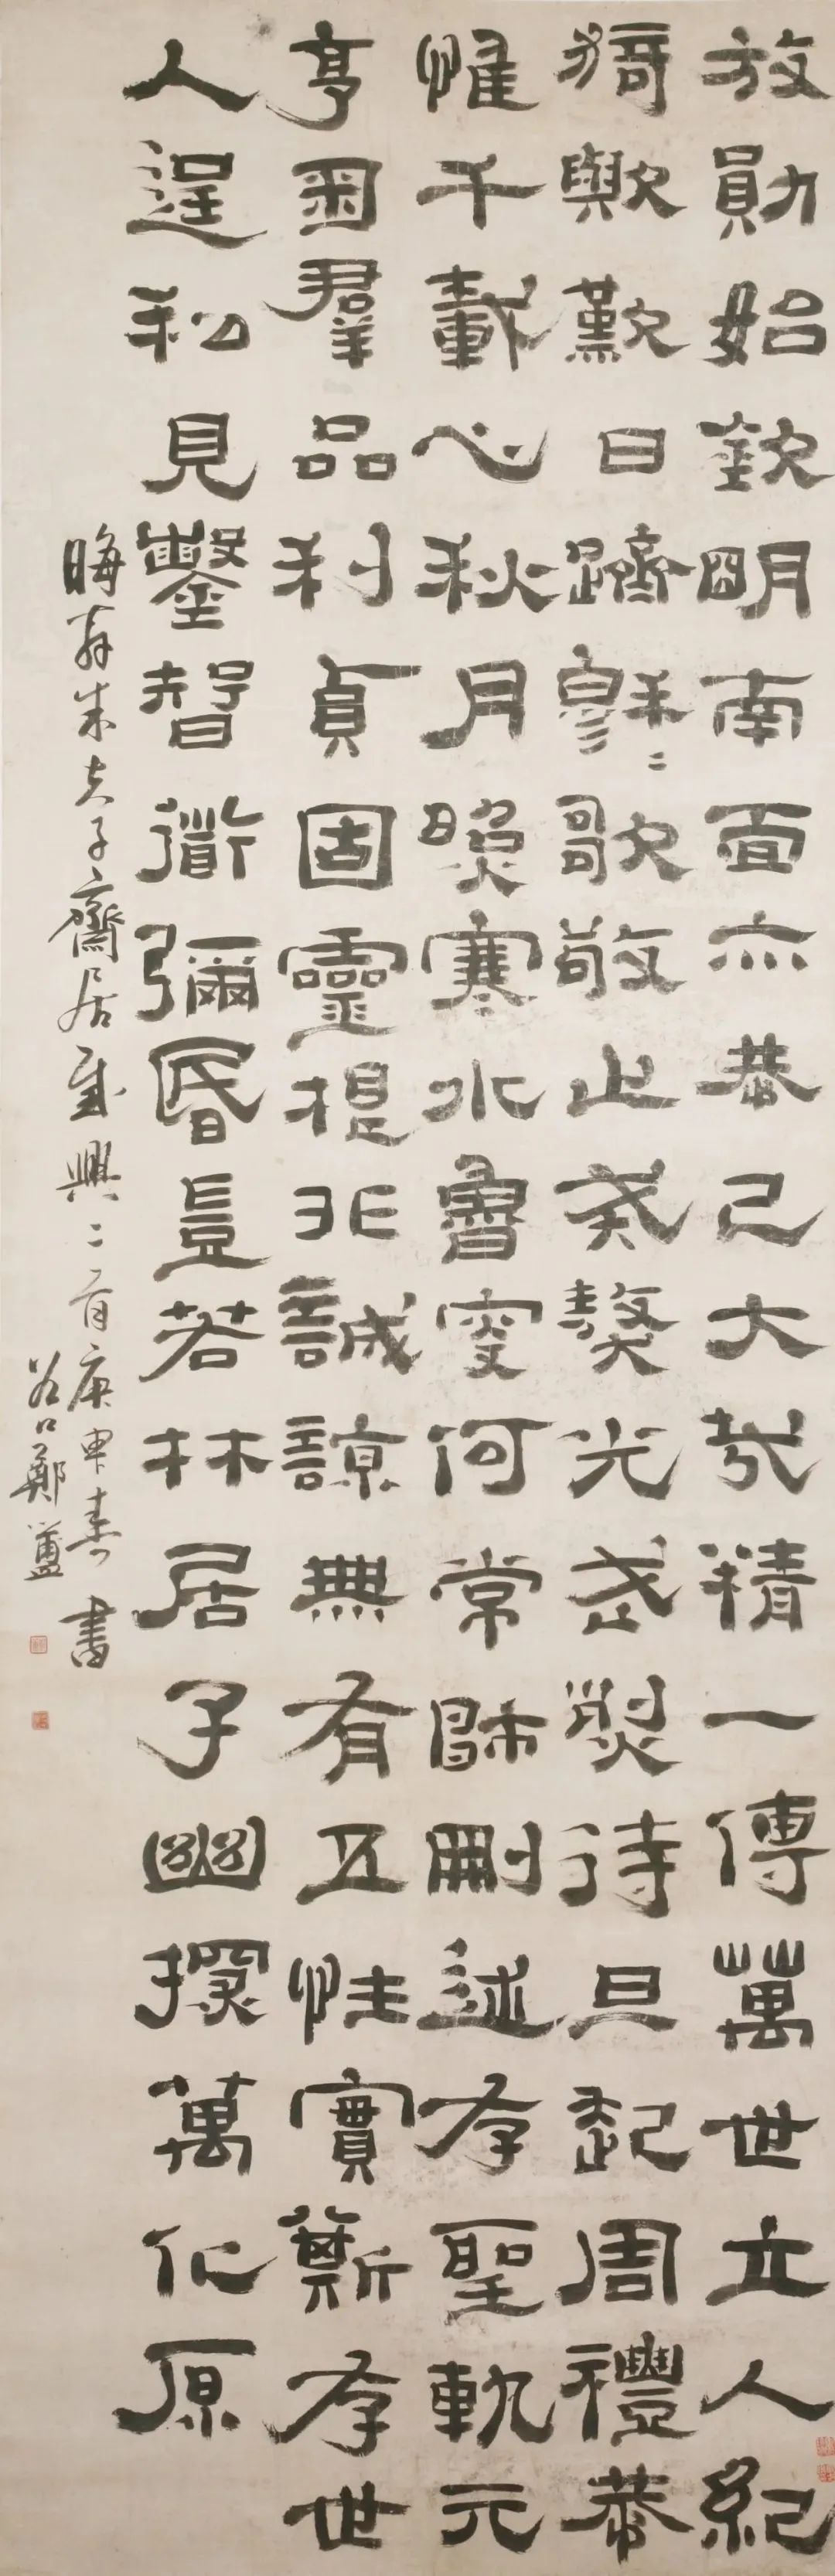 放勛始欽明南面亦恭己大哉精一傳萬世立人紀
猗歟歎日躋穆〻歌敬止戒獒光武烈待旦起周禮恭
惟千載心秋月照寒水魯叟何常師刪述存聖軌元
亨羣品利貞固靈根非誠諒無有五性實斯存世
人逞私見鑿智道彌昏豈若林居子幽探萬化原
晦弇朱夫子齋居感興二首庚申春書
谷口鄭簠